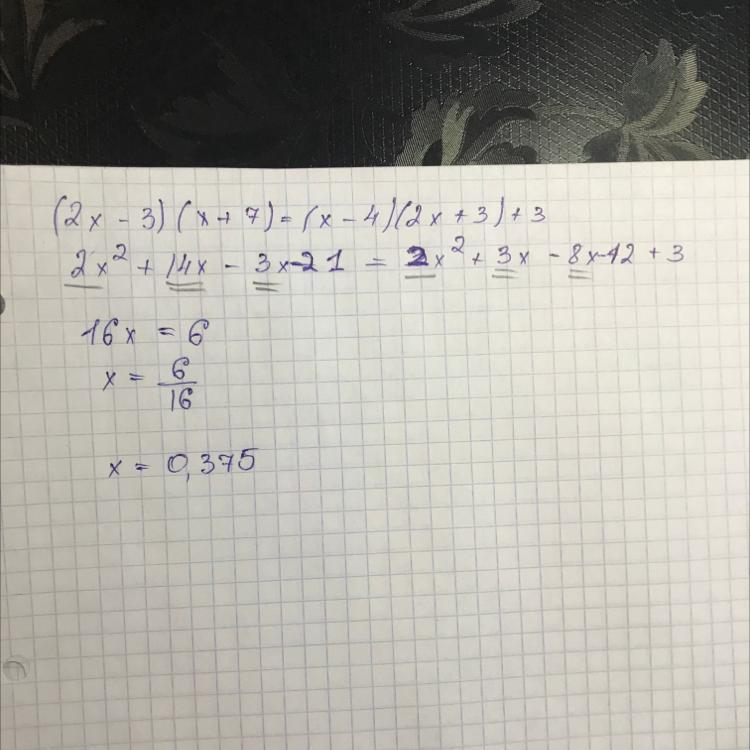 (2x - 3)(x + 7) = (x - 4)(2x + 3) + 3
2x² + 14x - 3x - 21 = 2x² + 3x - 8x - 12 + 3
16x = 6
x = 6/16
x = 0,375